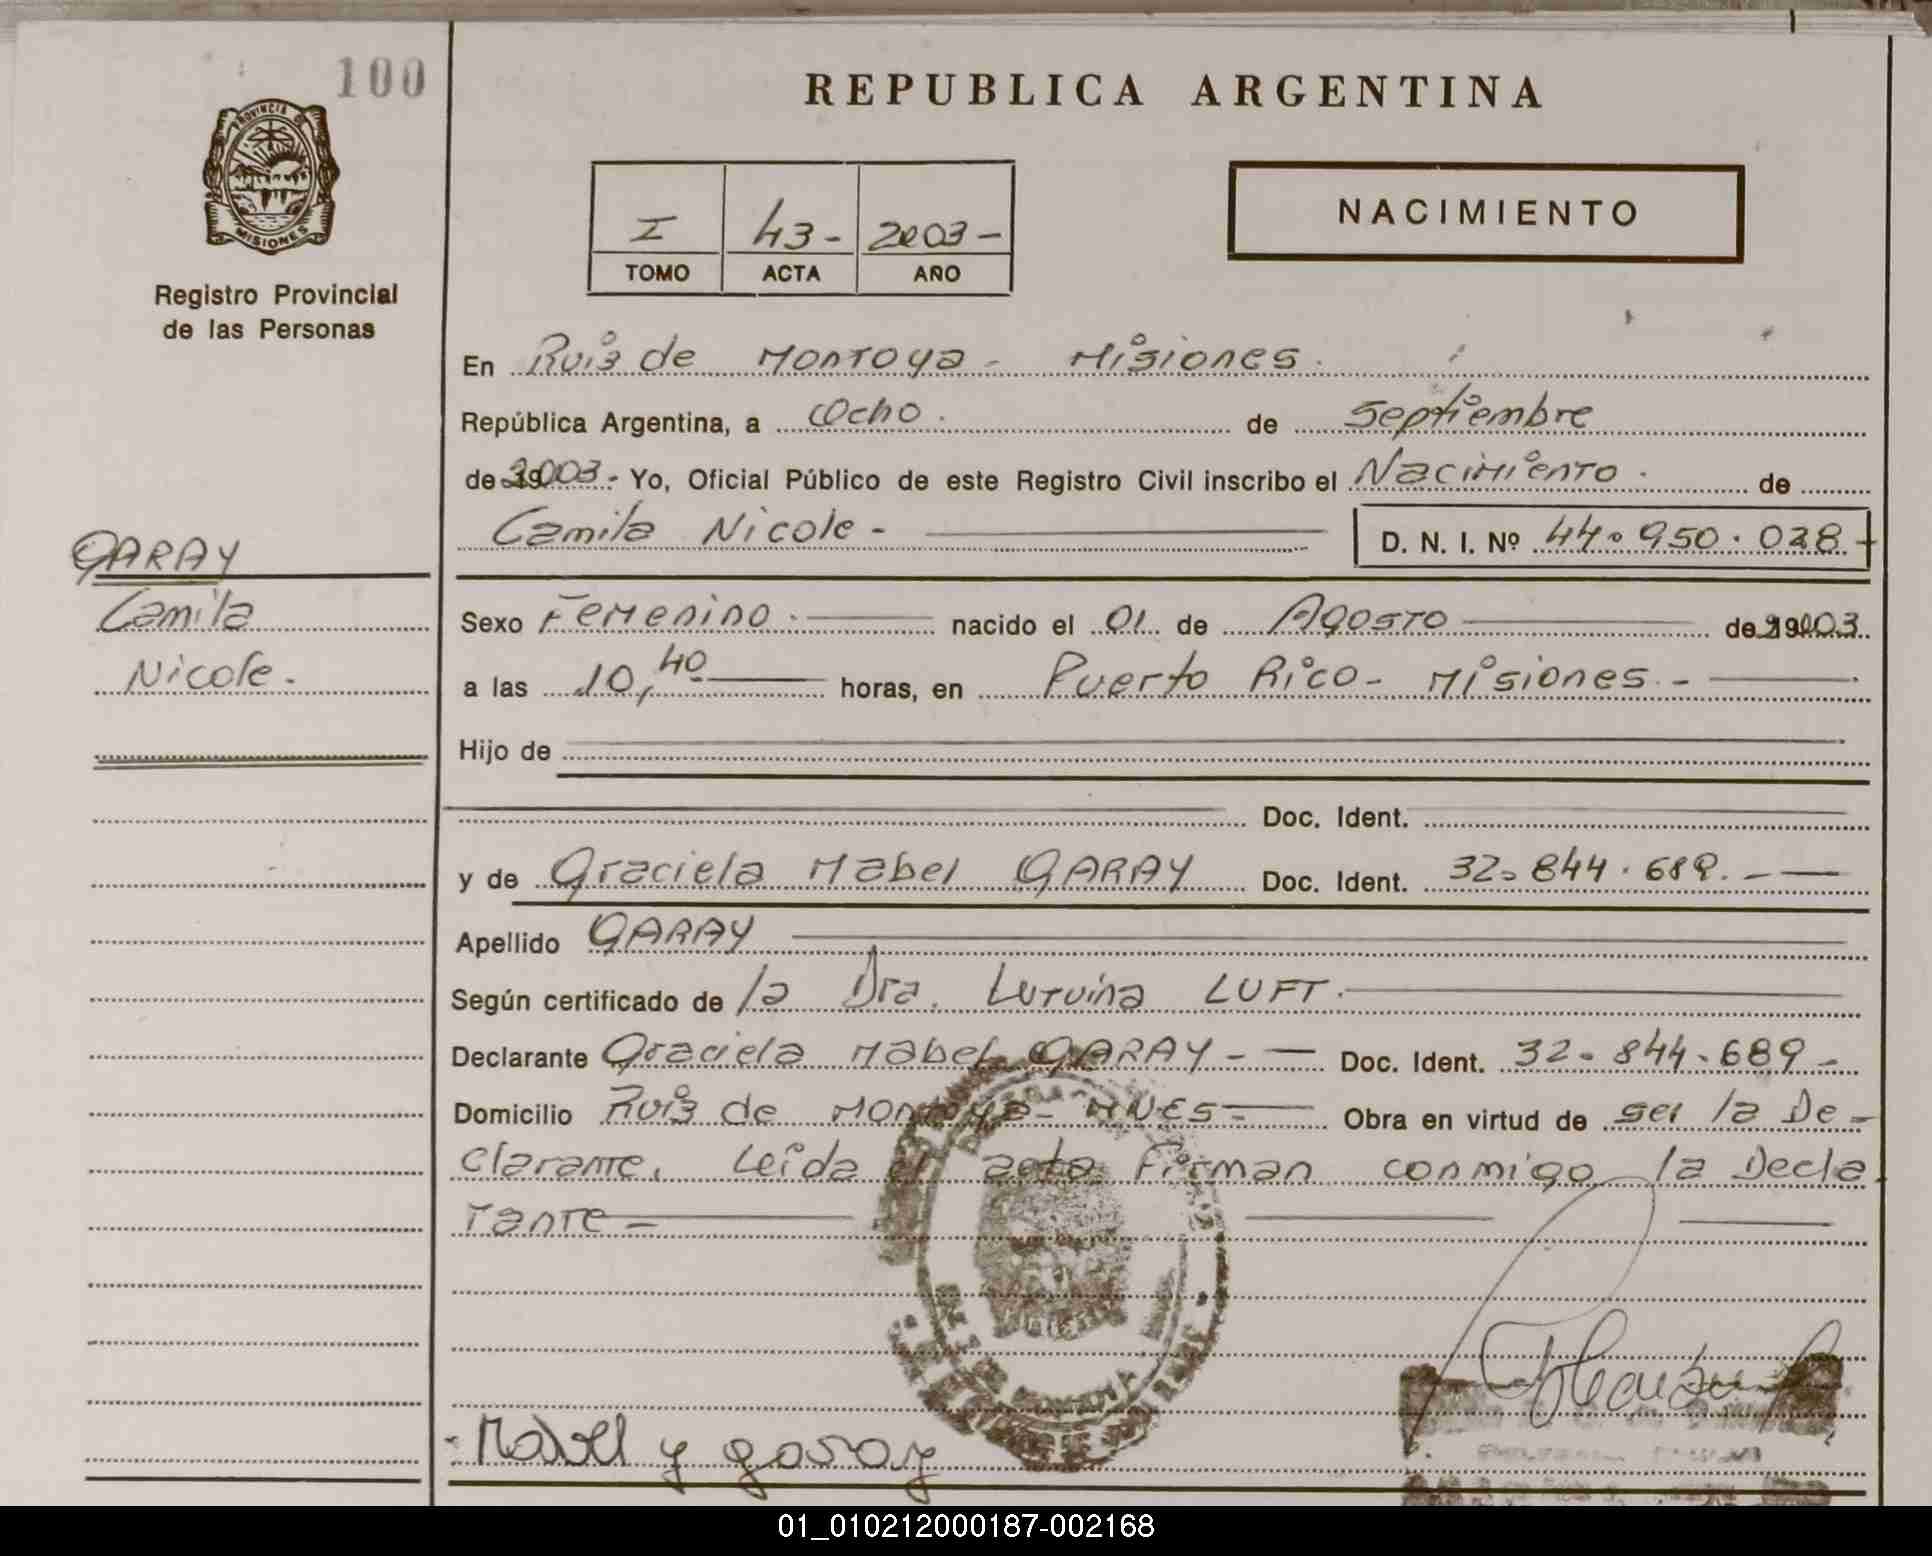 100
REPUBLICA ARGENTINA
PROVINCIA DE
MISIONES
Registro Provincial
de las Personas
I 43- 2003-
TOMO ACTA AÑO
NACIMIENTO
En Ruiz de Montoya - Misiones.
República Argentina, a Ocho. de Septiembre
de 2003.- Yo, Oficial Público de este Registro Civil inscribo el Nacimiento. de
Camila Nicole -
D. N. I. Nº 44.950.028-
GARAY
Camila
Nicole.
Sexo Femenino. nacido el 01 de Agosto de 2003.
a las 10,40 horas, en Puerto Rico - Misiones. -
Hijo de
Doc. Ident.
y de Graciela Mabel GARAY Doc. Ident. 32.844.689. -
Apellido GARAY
Según certificado de la Dra. LUFT.
Declarante Graciela Mabel GARAY - Doc. Ident. 32.844.689 -
Domicilio Ruiz de Montoya - MNES - Obra en virtud de ser la De-
clarante. Leída el acta Firman conmigo la Decla
rante -
Mabel y garay
01_010212000187-002168